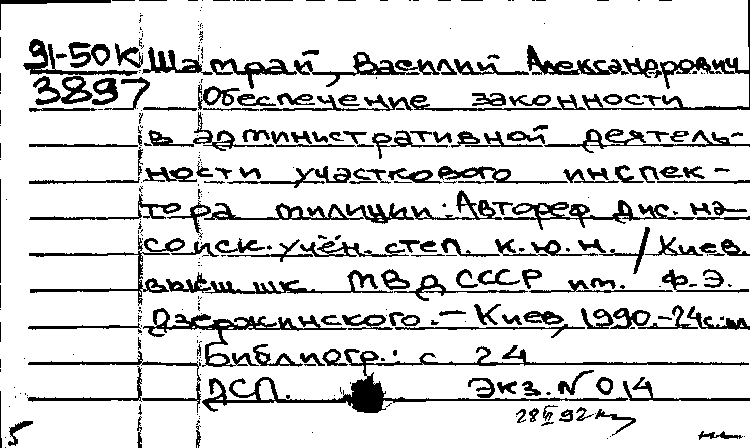 91-50К Шатрай, Василий Александрович
3897 Обеспечение законности
в административной деятель-
ности участкового инспек-
тора милиции: Автореф. дис. на
соиск. учён. степ. к.ю.н. / Киев.
высш. шк. МВД СССР им. Ф.Э.
Дзержинского. — Киев, 1990. - 24с.
Библиогр.: с. 24
ДСП. Экз. № 014
28 92
5